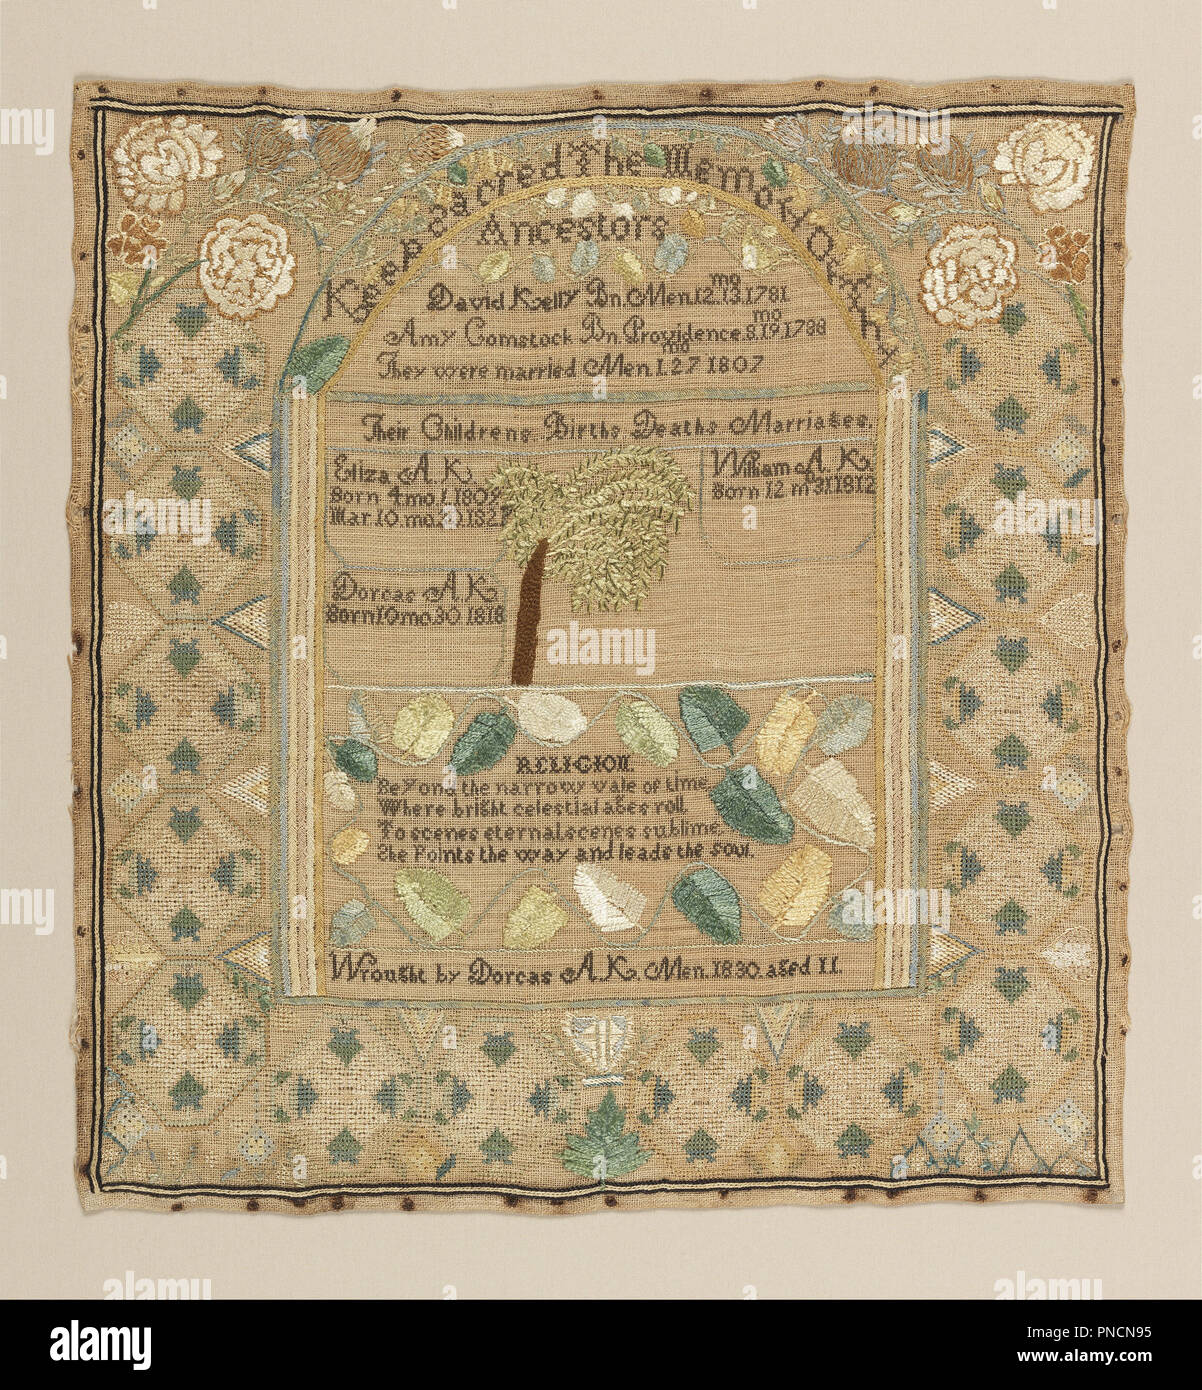 Keep Sacred The Memory Of Your
Ancestors
David Kelly Bn. Men. 12 mo 13. 1781
Amy Comstock Bn. Providence. 8. mo 19. 1788
They were married Men 1. mo 27 1807
Their Childrens. Births Deaths Marriages.
Eliza A K
Born 4 mo 1. 1809
Mar 10. mo
William A. K.
Born 12 m 31. 1812
Dorcas A. K
Born 10 mo. 30 1818
RELIGION.
Beyond the narrow vale of time
Where bright celestial ages roll.
To scenes eternal, scenes sublime.
She Points the way and leads the soul.
Wrought by Dorcas A K. Men. 1830. aged 11.
alamy
Image ID: PNCN95
www.alamy.com